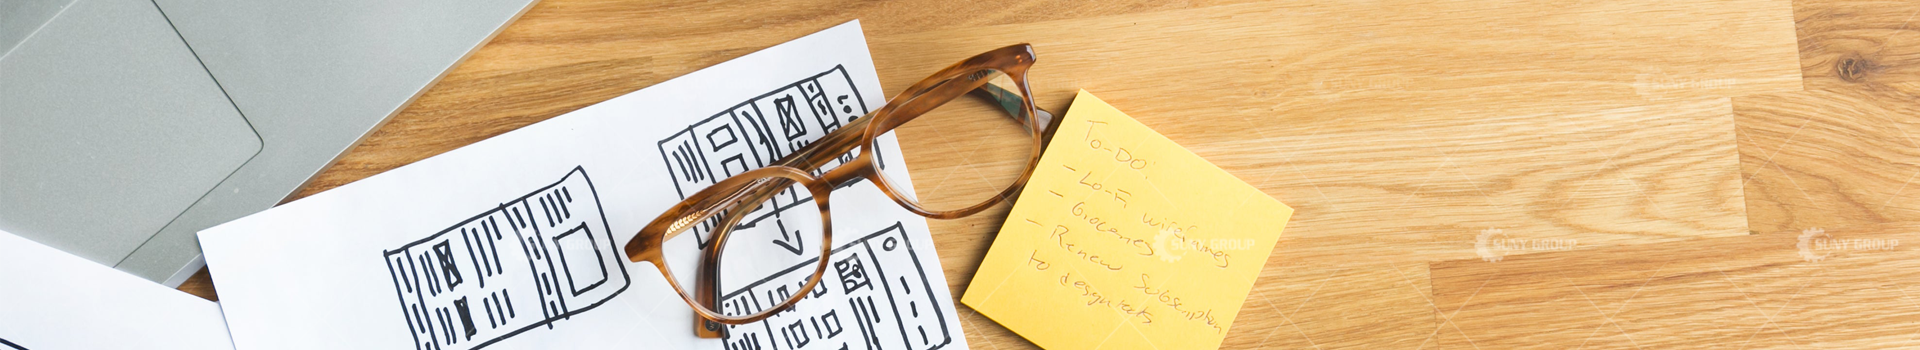 To-DO:
- Lo-Fi wireframes
- Groceries
- Renew Subscription
to design tools
SUNY GROUP
SUNY GROUP
SUNY GROUP